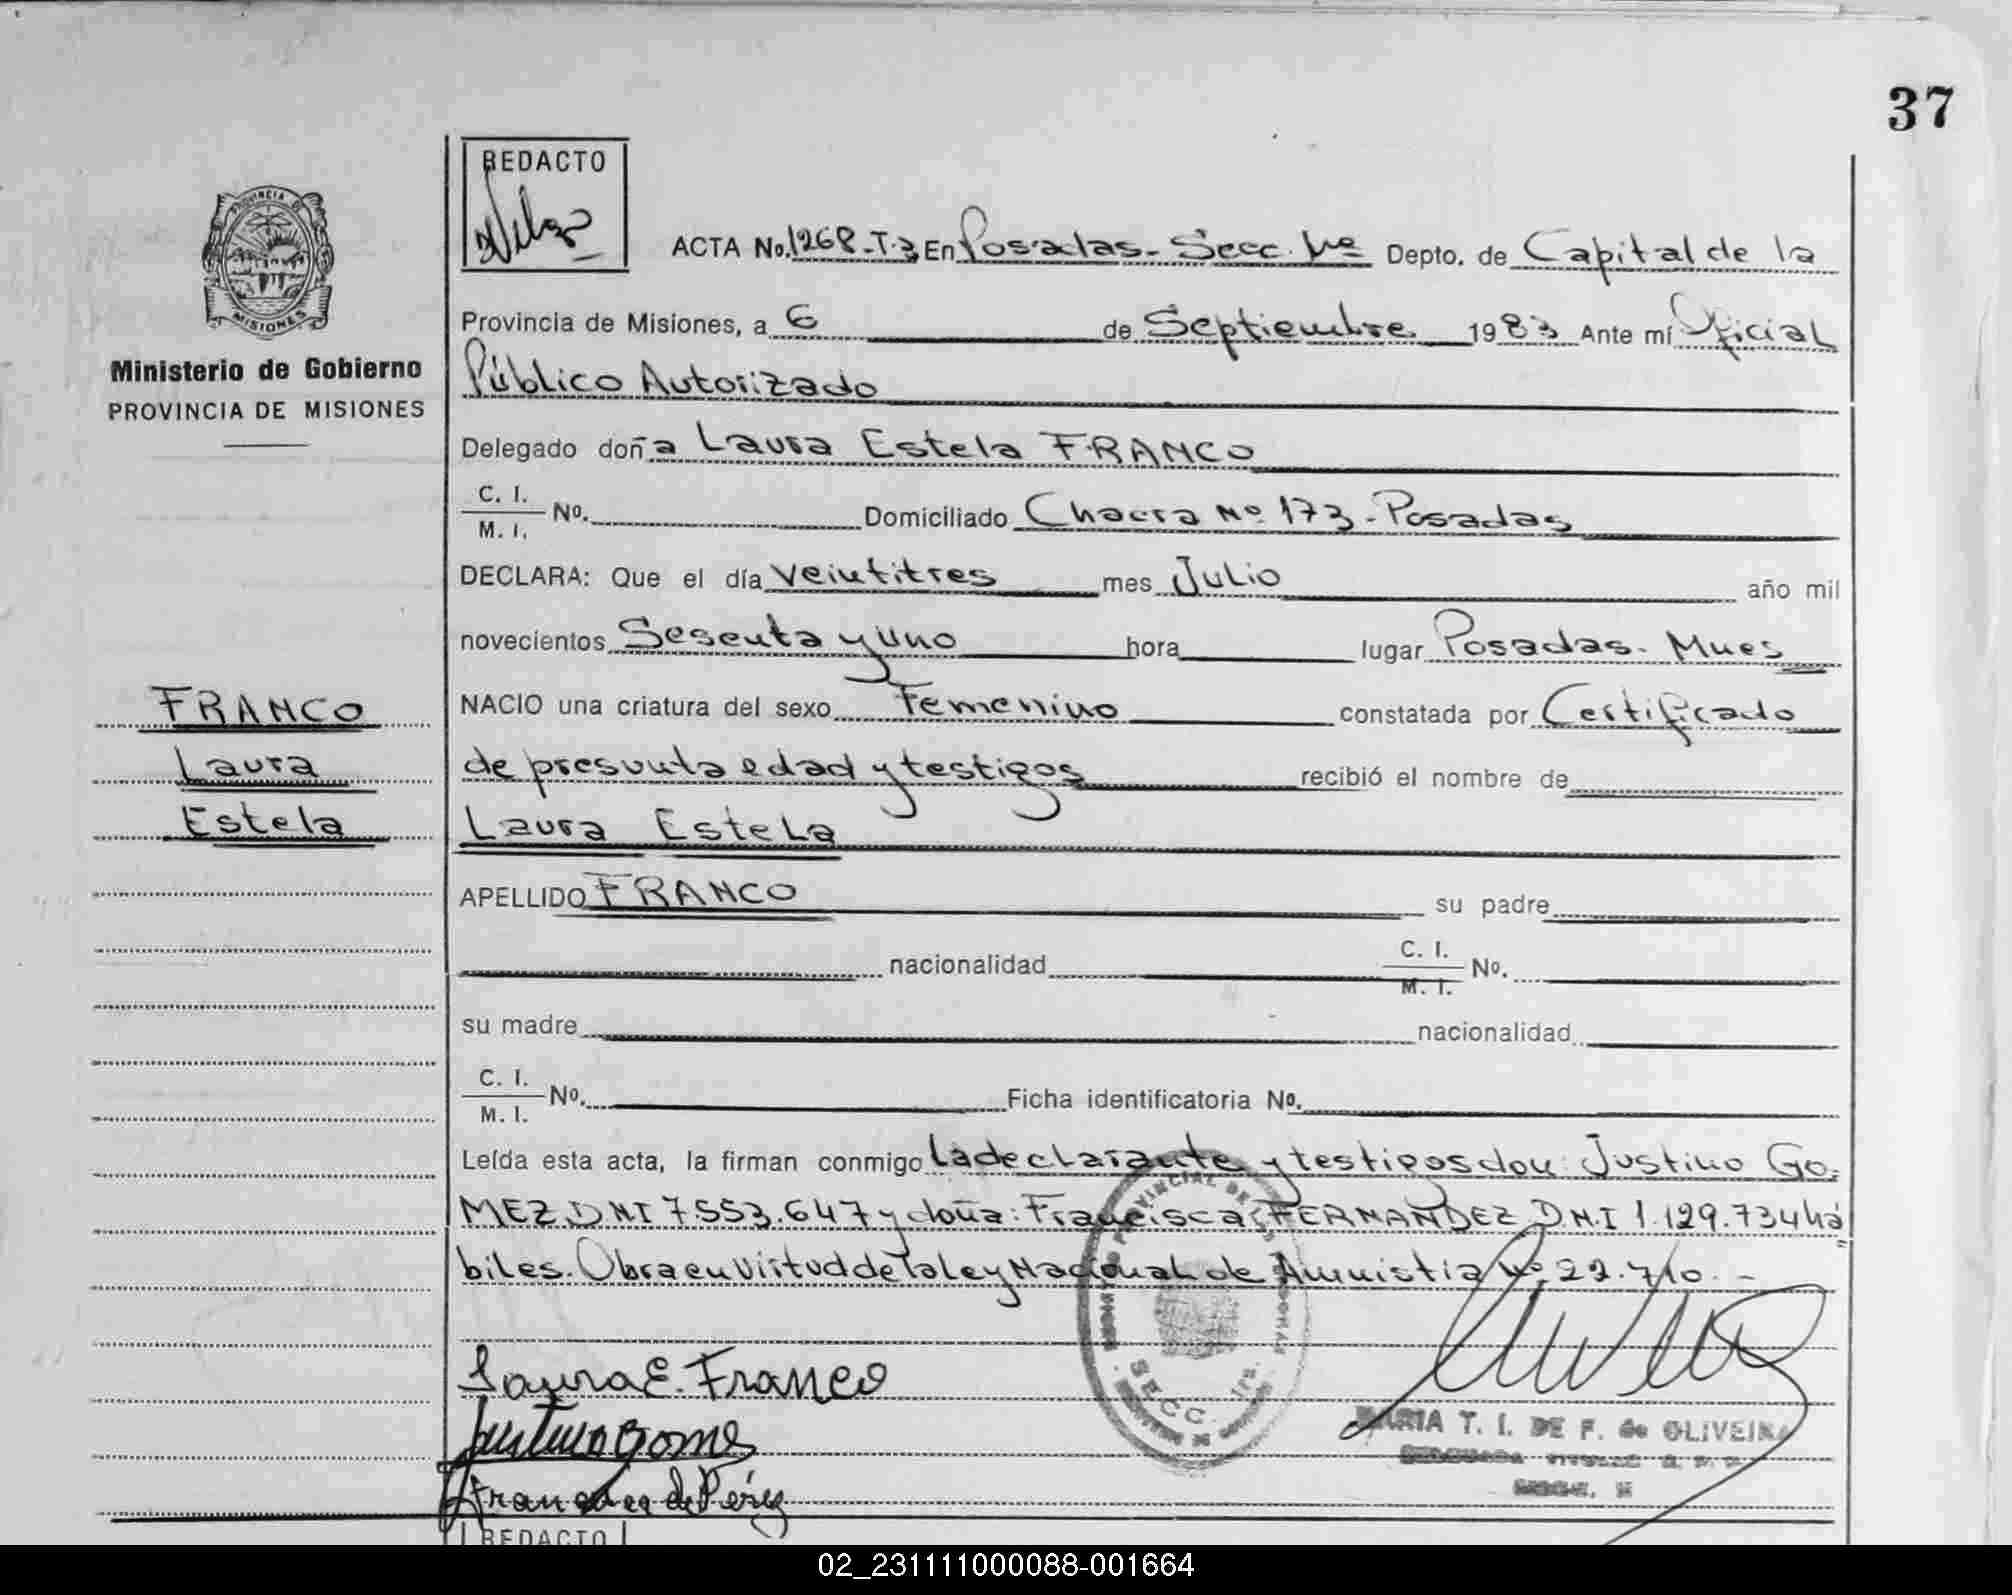 37
REDACTO
ACTA No. 1268-T-3 En Posadas - Secc. 1ra Depto. de Capital de la
PROVINCIA DE
MISIONES
Provincia de Misiones, a 6 de Septiembre 1983 Ante mí Oficial
Ministerio de Gobierno
PROVINCIA DE MISIONES
Público Autorizado
Delegado doña Laura Estela FRANCO
C. I.
M. I. No. Domiciliado Chacra Nº 173 - Posadas
DECLARA: Que el día veintitres mes Julio año mil
novecientos Sesenta y uno hora lugar Posadas - Mnes
FRANCO
Laura
Estela
NACIO una criatura del sexo Femenino constatada por Certificado
de presunta edad y testigos recibió el nombre de
Laura Estela
APELLIDO FRANCO su padre
nacionalidad C. I. M. I. No.
su madre nacionalidad
C. I.
M. I. No. Ficha identificatoria No.
Leída esta acta, la firman conmigo la declarante y testigos don: Justino GO=
MEZ D.N.I 7.553.647 y doña: Francisca FERNANDEZ D.N.I 1.129.734 há=
biles. Obra en Virtud de la ley Nacional de Amnistia Nº 22.710.-
SECC. 1ra.
Laura E. Franco
Justino Gomes
Francisca de Pérez
MARIA T. I. DE F. de OLIVEIRA
REDACTO
02_231111000088-001664